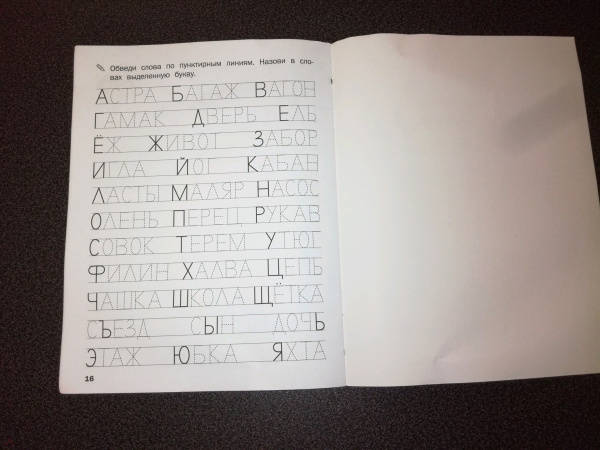 Обведи слова по пунктирным линиям. Назови в сло-
вах выделенную букву.
АСТРА БАГАЖ ВАГОН
ГАМАК ДВЕРЬ ЕЛЬ
ЁЖ ЖИВОТ ЗАБОР
ИГЛА ЙОГ КАБАН
ЛАСТЫ МАЛЯР НАСОС
ОЛЕНЬ ПЕРЕЦ РУКАВ
СОВОК ТЕРЕМ УТЮГ
ФИЛИН ХАЛВА ЦЕПЬ
ЧАШКА ШКОЛА ЩЁТКА
СЪЕЗД СЫН ДОЧЬ
ЭТАЖ ЮБКА ЯХТА
16